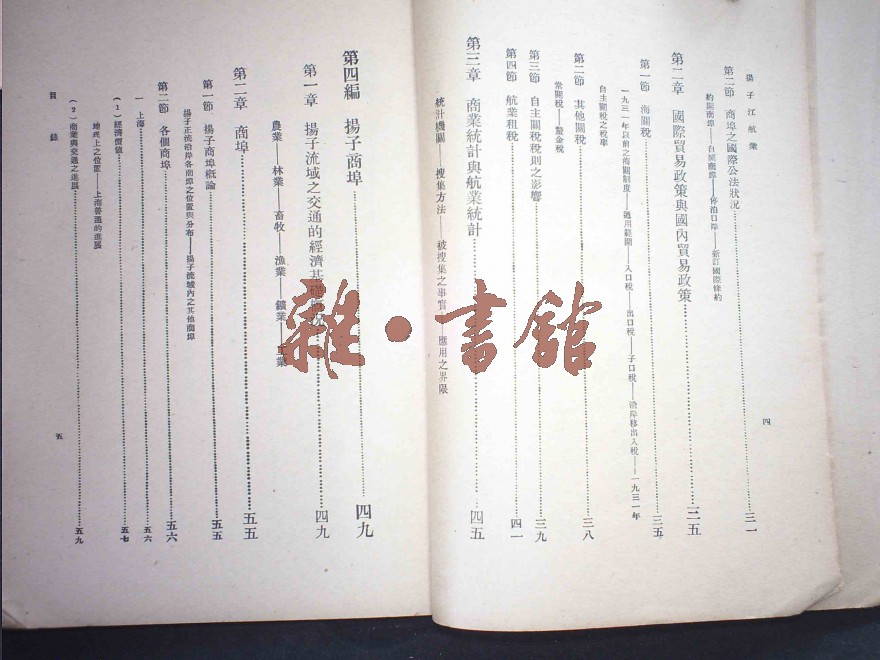 揚子江航業
第二節 商埠之國際公法狀況……三一
約開商埠——自開商埠——停泊口岸——新訂國際條約
第二章 國際貿易政策與國內貿易政策……三五
第一節 海關稅……三五
一九三一年以前之海關制度——適用範圍——入口稅——出口稅——子口稅——沿岸移出入稅——一九三一年
自主關稅之稅率
第二節 其他關稅……三八
常關稅——釐金稅
第三節 自主關稅稅則之影響……三九
第四節 航業租稅……四一
第三章 商業統計與航業統計……四五
統計機關——搜集方法——被搜集之事實——應用之界限
四
第四編 揚子商埠……四九
第一章 揚子流域之交通的經濟基礎……四九
農業——林業——畜牧——漁業——鑛業——工業
第二章 商埠……五五
第一節 揚子商埠概論……五五
揚子正流沿岸各商埠之位置與分布——揚子流域內之其他商埠
第二節 各個商埠……五六
一 上海……五六
(1)經濟價值……五七
地球上之位置——上海普通的進展
(2)商業與交通之進展……五九
目錄
五
雜·書館